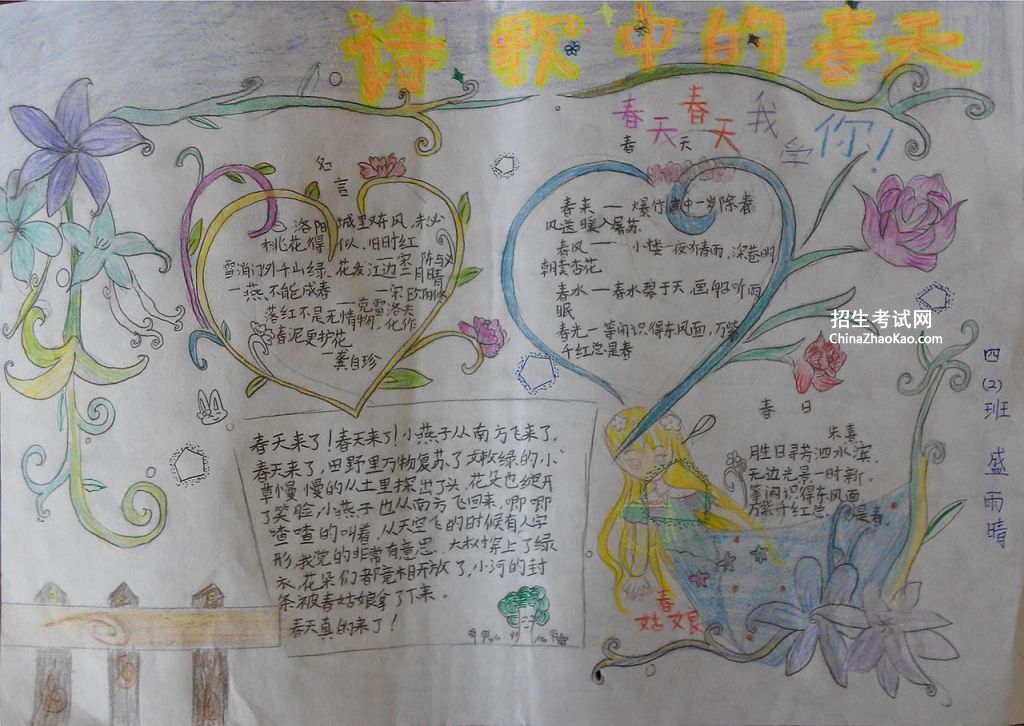 诗歌中的春天
春天春天我学你!
春天
名言
洛阳城里又东风,未必
桃花得似,旧时红
—宋 陈与义
雪消门外千山绿,花发江边二月晴
—宋 欧阳修
一燕不能成春
—克雷洛夫
落红不是无情物,化作
春泥更护花
—龚自珍
春来——爆竹声中一岁除春
风送暖入屠苏.
春风——小楼一夜听春雨,深巷明
朝卖杏花
春水——春水碧于天,画船听雨
眠
春光—等闲识得东风面,万紫
千红总是春
招生考试网
ChinaZhaoKao.com
四(2)班 盛雨晴
春天来了!春天来了!小燕子从南方飞来了。
春天来了,田野里万物复苏了嫩绿的小
草慢慢的从土里探出了头,花朵也绽开
了笑脸,小燕子也从南方飞回来,唧唧
喳喳的叫着,从天空飞的时候有人字
形,我觉的非常有意思.大树穿上了绿
衣,花朵们都竞相开放了,小河的封
条被春姑娘拿了下来。
春天真的来了!
春日
朱熹
胜日寻芳泗水滨,
无边光景一时新。
等闲识得东风面
万紫千红总是春。
春
姑娘